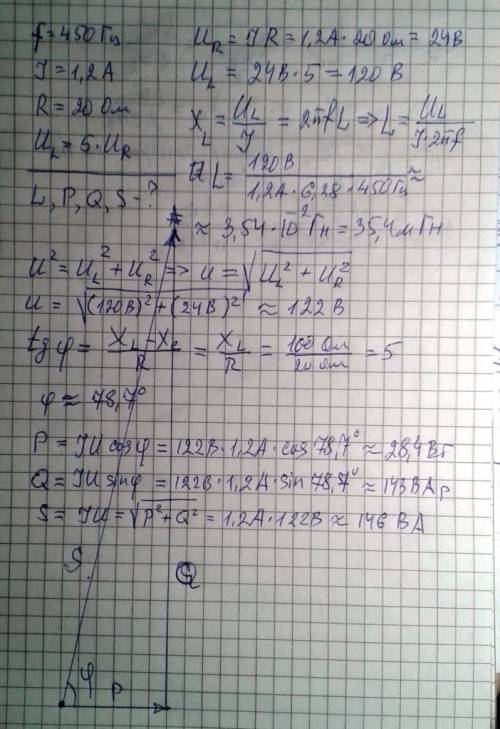 f = 450 Гц
I = 1,2 А
R = 20 Ом
U_L = 5·U_R
L, P, Q, S - ?
U_R = IR = 1,2А·20 Ом = 24В
U_L = 24В·5 = 120 В
X_L = U_L/I = 2πfL => L = U_L/(I·2πf)
L = 120В/(1,2А·6,28·450Гц) ≈
≈ 3,54·10^-2 Гн = 35,4мГн
U² = U_L² + U_R² => U = √(U_L² + U_R²)
U = √((120В)² + (24В)²) ≈ 122 В
tg φ = (X_L - X_C)/R = X_L/R = 100 Ом/20 Ом = 5
φ ≈ 78,7°
P = IU cos φ = 122В·1,2А·cos 78,7° ≈ 28,4Вт
Q = IU sin φ = 122В·1,2А·sin 78,7° ≈ 143ВАр
S = IU = √(P²+Q²) = 1,2А·122В ≈ 146 ВА
S
Q
φ
P